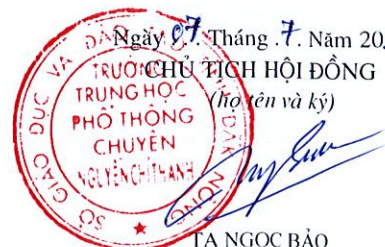 Ngày 07. Tháng .7. Năm 20
CHỦ TỊCH HỘI ĐỒNG
(họ tên và ký)
SỞ GIÁO DỤC VÀ ĐÀO
ĐẮK NÔNG
TRƯỜNG
TRUNG HỌC
PHỔ THÔNG
CHUYÊN
NGUYỄN CHÍ THANH
TẠ NGỌC BẢO